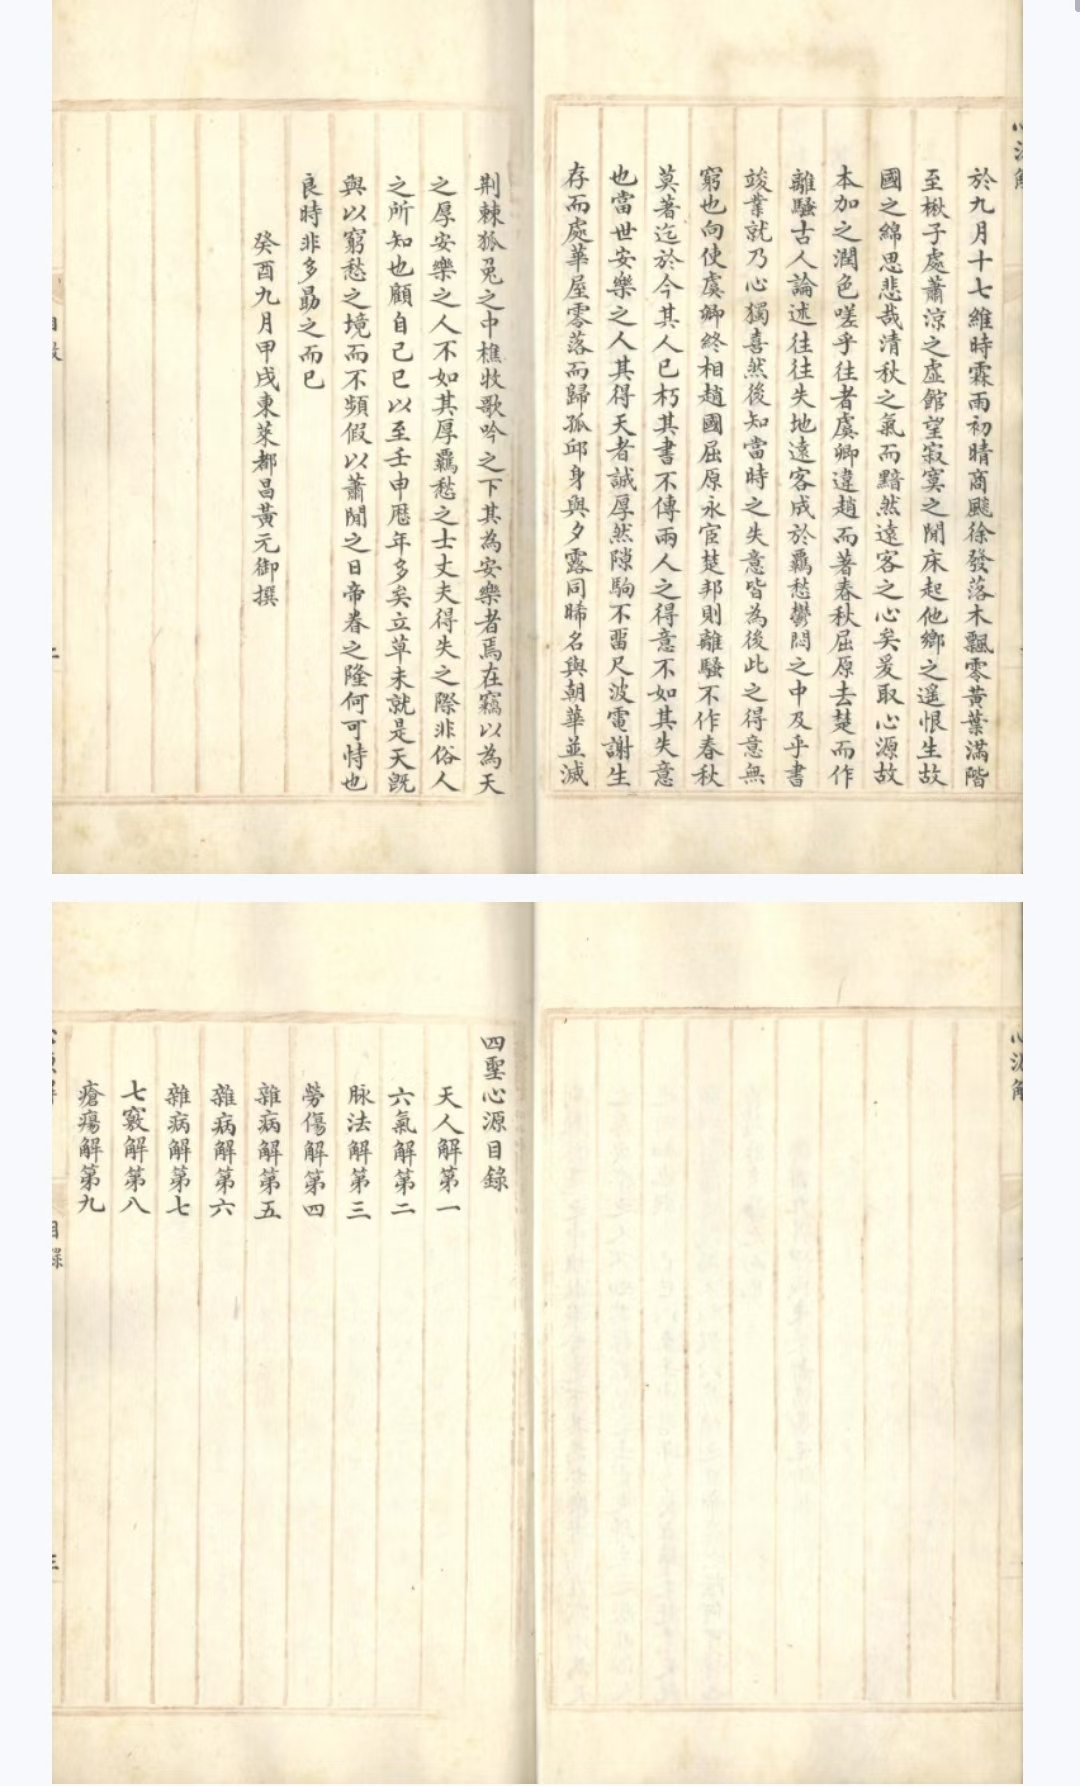 於九月十七維時霖雨初晴商飈徐發落木飄零黃葉滿階
至楸子處蕭涼之虛館望寂寞之閒床起他鄉之遙恨生故
國之綿思悲哉清秋之氣而黯然遠客之心矣爰取心源故
本加之潤色嗟乎往者虞卿違趙而著春秋屈原去楚而作
離騷古人論述往往失地遠客成於羈愁鬱悶之中及乎書
竣業就乃心獨喜然後知當時之失意皆為後此之得意無
窮也向使虞卿終相趙國屈原永宦楚邦則離騷不作春秋
莫著迄於今其人已朽其書不傳兩人之得意不如其失意
也當世安樂之人其得天者誠厚然隙駒不畱尺波電謝生
存而處華屋零落而歸孤邱身與夕露同晞名與朝華並滅
荆棘狐兔之中樵牧歌吟之下其為安樂者焉在竊以為天
之厚安樂之人不如其厚羈愁之士丈夫得失之際非俗人
之所知也顧自己巳以至壬申暦年多矣立草未就是天旣
與以窮愁之境而不頻假以蕭閒之日帝眷之隆何可恃也
良時非多勗之而已
癸酉九月甲戌東萊都昌黃元御撰
四聖心源目錄
天人解第一
六氣解第二
脉法解第三
勞傷解第四
雜病解第五
雜病解第六
雜病解第七
七竅解第八
瘡瘍解第九
目錄
三